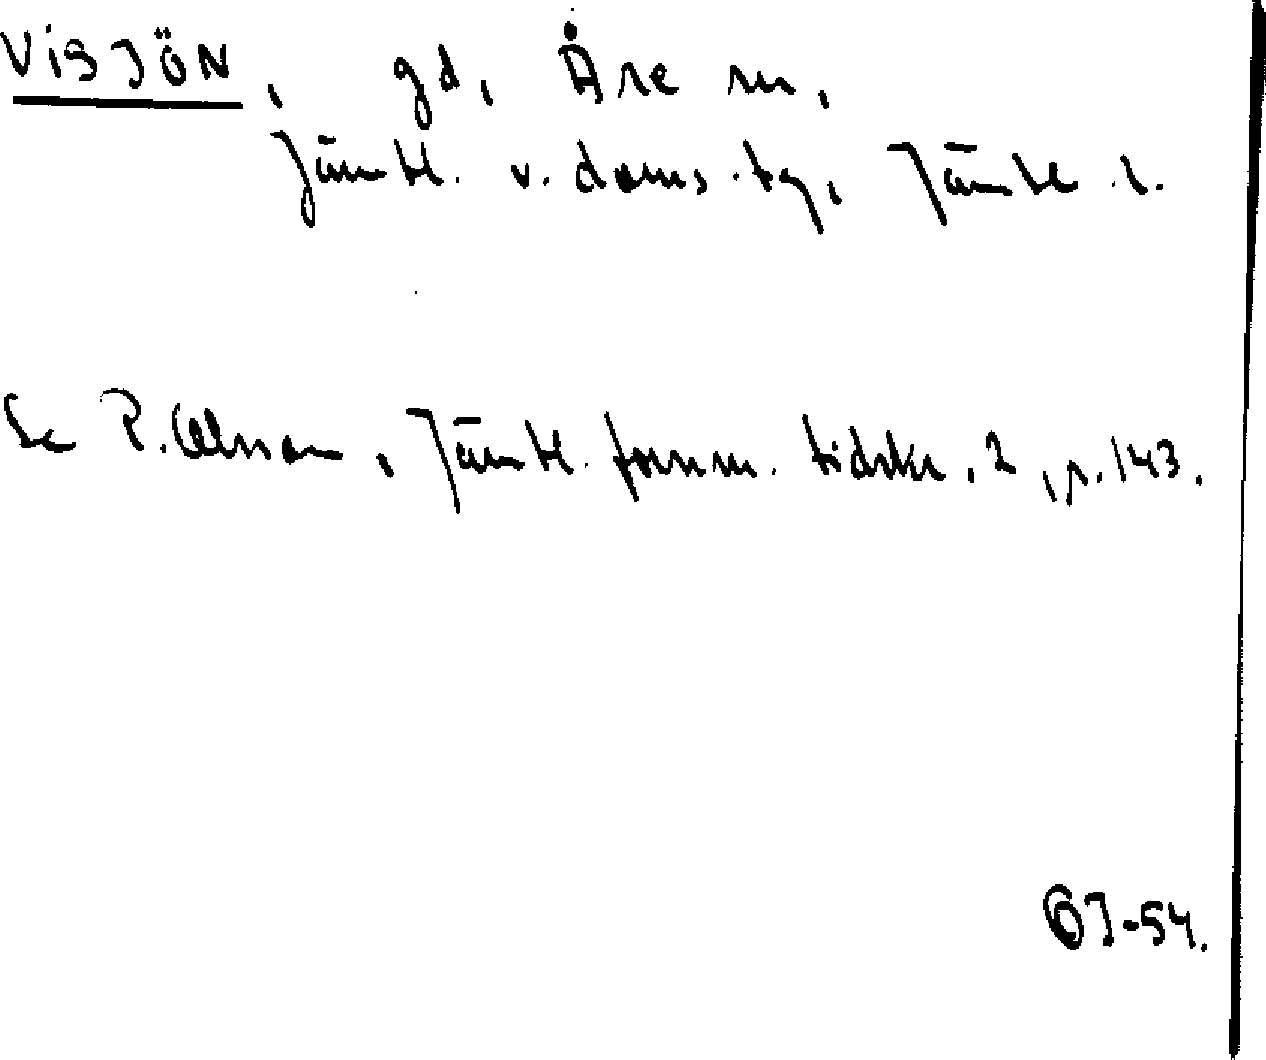 VISJÖN, gd, Åre sn,
Jämtl. v. doms.tg, Jämtl. l.
Se P. Olsson, Jämtl. fornm. tidskr. 2, s. 143.
OJ-54.